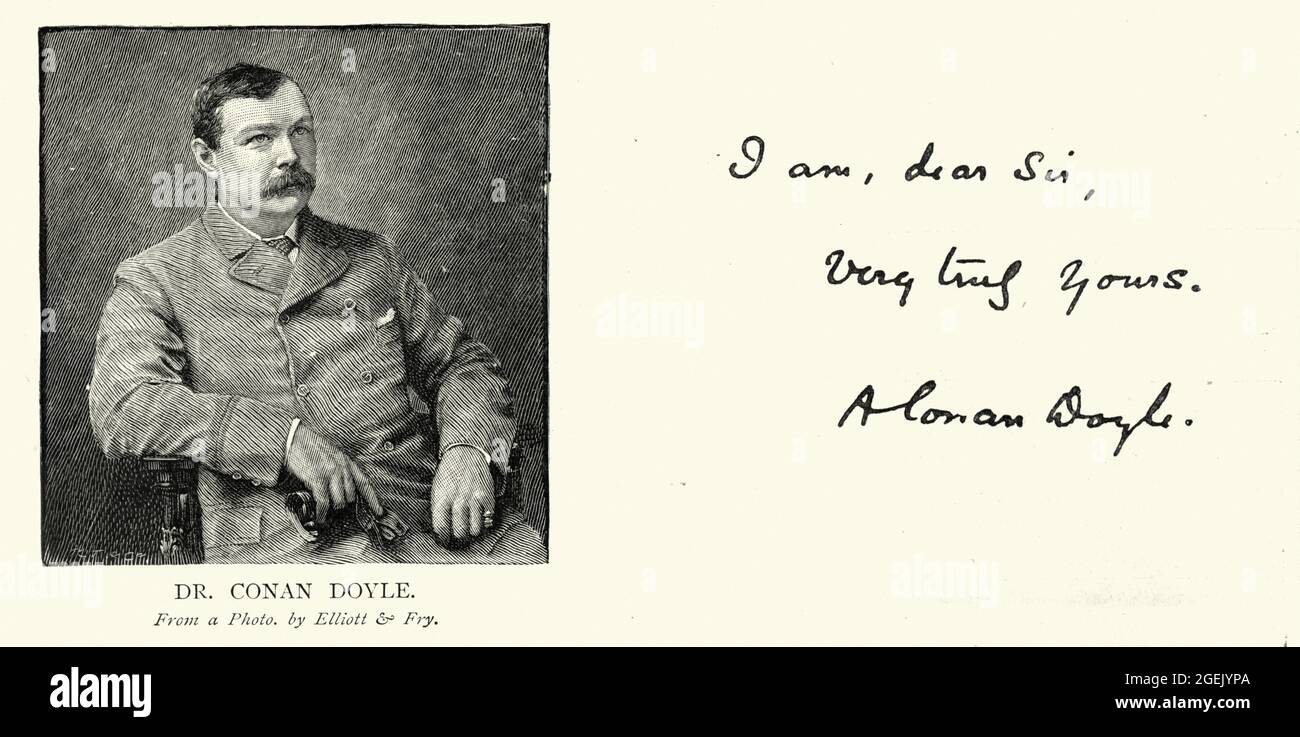 I am, dear Sir,
Very truly Yours.
A Conan Doyle.
DR. CONAN DOYLE.
From a Photo. by Elliott & Fry.
alamy
a
alamy
Image ID: 2GEJYPA
www.alamy.com